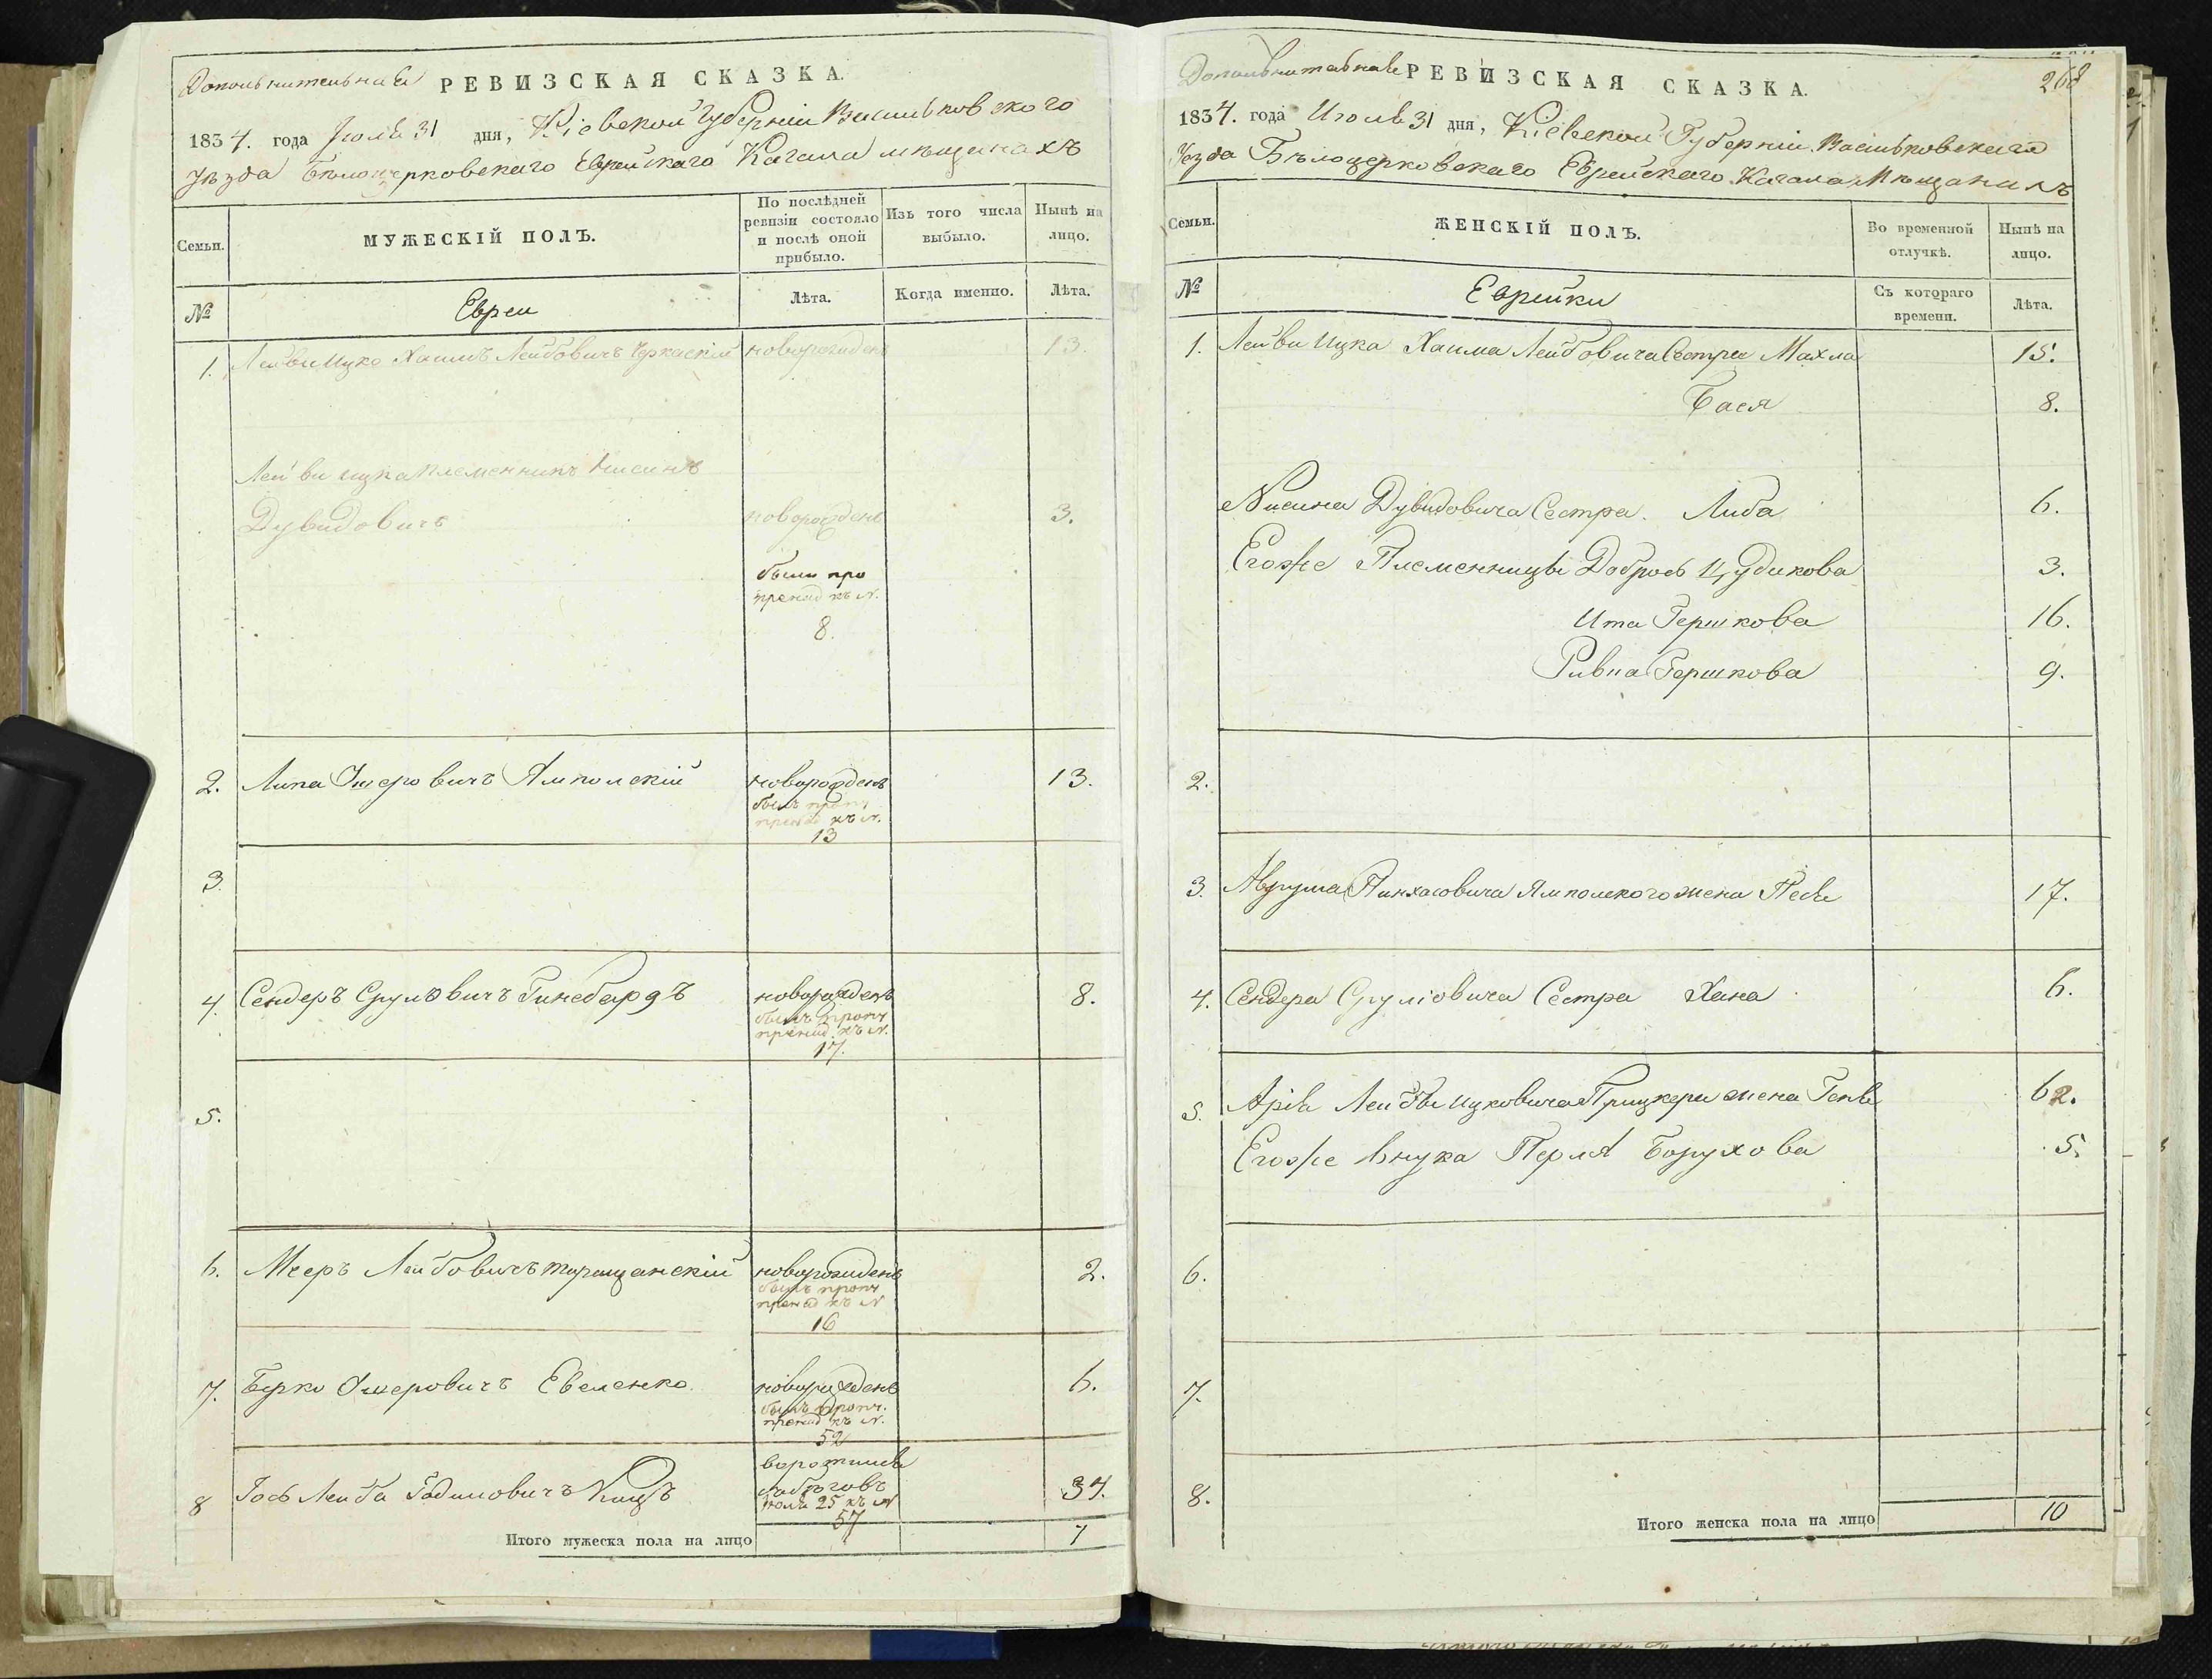 Дополнительная РЕВИЗСКАЯ СКАЗКА.
1834. года Июля 31 дня, Кіевской Губерніи Васильковского
Уѣзда Бѣлоцерковскаго Еврейскаго Кагала мѣщанахъ
Семьи.
МУЖЕСКІЙ ПОЛЪ.
По послѣдней
ревизіи состояло
и послѣ оной
прибыло.
Изъ того числа
выбыло.
Нынѣ на
лицо.
№
Евреи
Лѣта.
Когда именно.
Лѣта.
1. Лейви Ицко Хаимъ Лейбовичъ Черкаскій новорожденъ 13.
Лейви Ицка племенникъ Нисинъ
Дувидовичъ новорожденъ 3.
были про
пренад къ №.
8.
2. Липа Ошеровичъ Ямполскій новорожденъ 13.
былъ пропу
пренад къ №.
13
3.
4. Сендеръ Срулёвичъ новорожденъ 8.
былъ пропу
пренад. къ №.
17.
5.
6. Мееръ Лейбовичъ Таращанскій новорожденъ 2.
былъ пропу
пренад къ №
16
7. Берко Ошеровичъ Евеленко. новорожденъ 6.
былъ пропу.
пренад къ №.
52
8 Іось Лейба Кицъ
изъ бѣговъ
25 къ №
57
34.
Итого мужеска пола на лицо 7
268
Дополнительная РЕВИЗСКАЯ СКАЗКА.
1834. года Июля 31 дня, Кіевской Губерніи Васильковскаго
Уезда Бѣлоцерковскаго Еврейскаго Кагала Мѣщанахъ
Семьи.
ЖЕНСКІЙ ПОЛЪ.
Во временной
отлучкѣ.
Нынѣ на
лицо.
№
Еврейки
Съ котораго
времени.
Лѣта.
1. Лейви Ицка Хаима Лейбовича Сестра Махла 15.
Бася 8.
Нисина Дувидовича Сестра. Либа 6.
Егожъе Племенницы Добросъ Цудикова 3.
Ита Гершкова 16.
Ривка Гершкова 9.
2.
3. Аврума Пинхасовича Ямполского жена Песя 17.
4. Сендера Сруліовича Сестра Хана 6.
5. Арія Лейбы Ицковича Прицкера жена Геня 62.
Егожъе Внука Перля Борухова 5.
6.
7.
8.
Итого женска пола на лицо 10